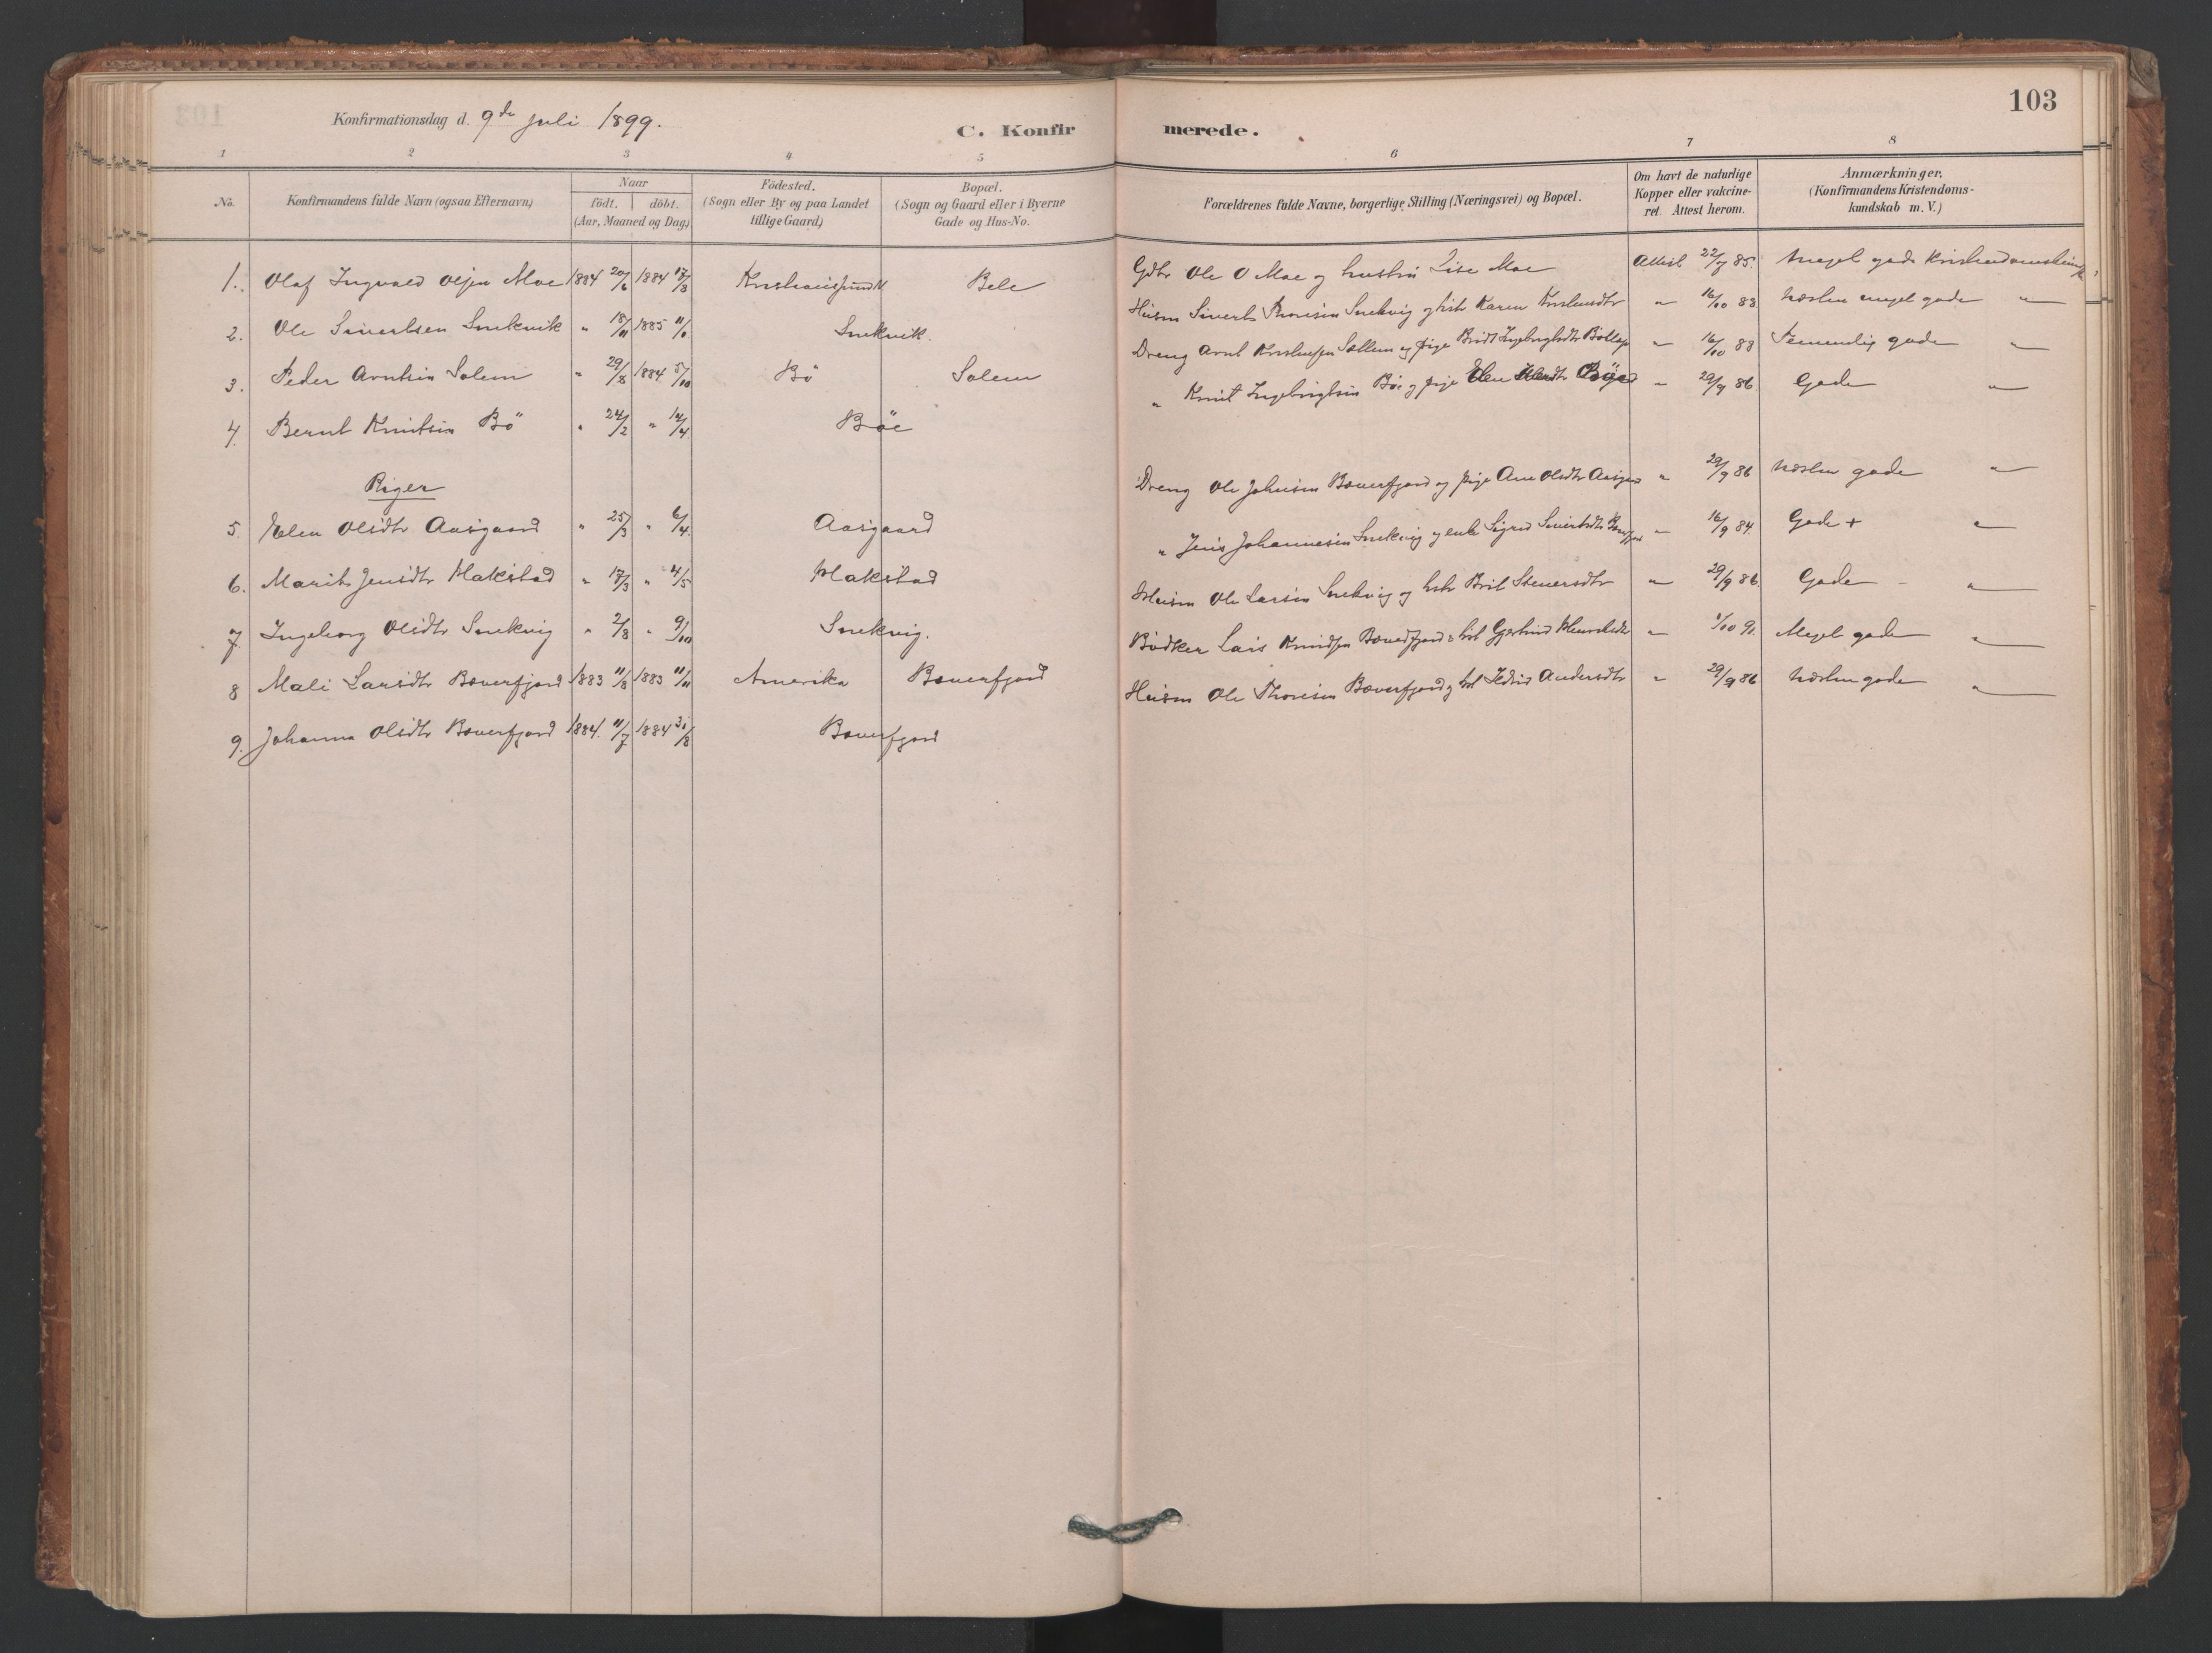 103
Konfirmationsdag d. 9de juli 1899.
C. Konfirmerede.
1 2 3 4 5 6 7 8
No.
Konfirmandens fulde Navn (ogsaa Efternavn)
Naar
födt. döbt.
(Aar, Maaned og Dag)
Födested.
(Sogn eller By og paa Landet
tillige Gaard)
Bopæl.
(Sogn og Gaard eller i Byerne
Gade og Hus-No.
Forældrenes fulde Navne, borgerlige Stilling (Næringsvei) og Bopæl.
Om havt de naturlige
Kopper eller vakcine-
ret. Attest herom.
Anmærkninger.
(Konfirmandens Kristendoms-
kundskab m. V.)
1. Olaf Ingvald Olsen Moe 1884 20/6 1884 17/8 Kristianssund N Bele Gdbr Ole O Moe og hustru Lise Moe Attest 22/7 85. Meget gode
2. Ole Sivertsen Snekvik " 18/11 1885 Snekvik. Husm Sivert Thoresen Snekvig og hstr Karen " 16/10 88 Næsten meget gode "
3. Peder Arntsen Solem " 29/8 1884 5/10 Bö Solem Dreng Arnt og pige " 16/10 88 Temmelig gode "
4. Bernt Knutsen Bö " 24/2 " 14/4 Böe " Knut Ingebrigtsen Böe og pige Elen " 29/9 86 Gode "
Piger
5. Elen Olsdtr Aasgaard " 25/3 " 6/4 Aasgaard Dreng Ole Johnsen Bæverfjord og pige Ane Olsdtr " 29/9 86 Næsten gode "
6. Marit Jensdtr Hakstad " 17/3 " 4/5 Hakstad " Jens Johannesen Snekvig og enke Sigrid Sivertsdtr " 16/9 84. Gode + "
7. Ingeborg Olsdtr Snekvig " 2/8 " 9/10 Snekvig. Husm Ole Larsen Snekvig og hstr Brit " 29/9 86 Gode "
8 Mali Larsdtr Bæverfjord 1883 11/8 1883 11/11 Amerika Bæverfjord Bödker Lars Knudsen Bæverfjord & hst Gjertrud " Meget gode "
9. Johanna Olsdtr Bæverfjord 1884. 11/7 1884 31/8 Bæverfjord Husm Ole Thoresen Bæverfjord og hst Andersdtr " 29/9 86 Næsten gode "